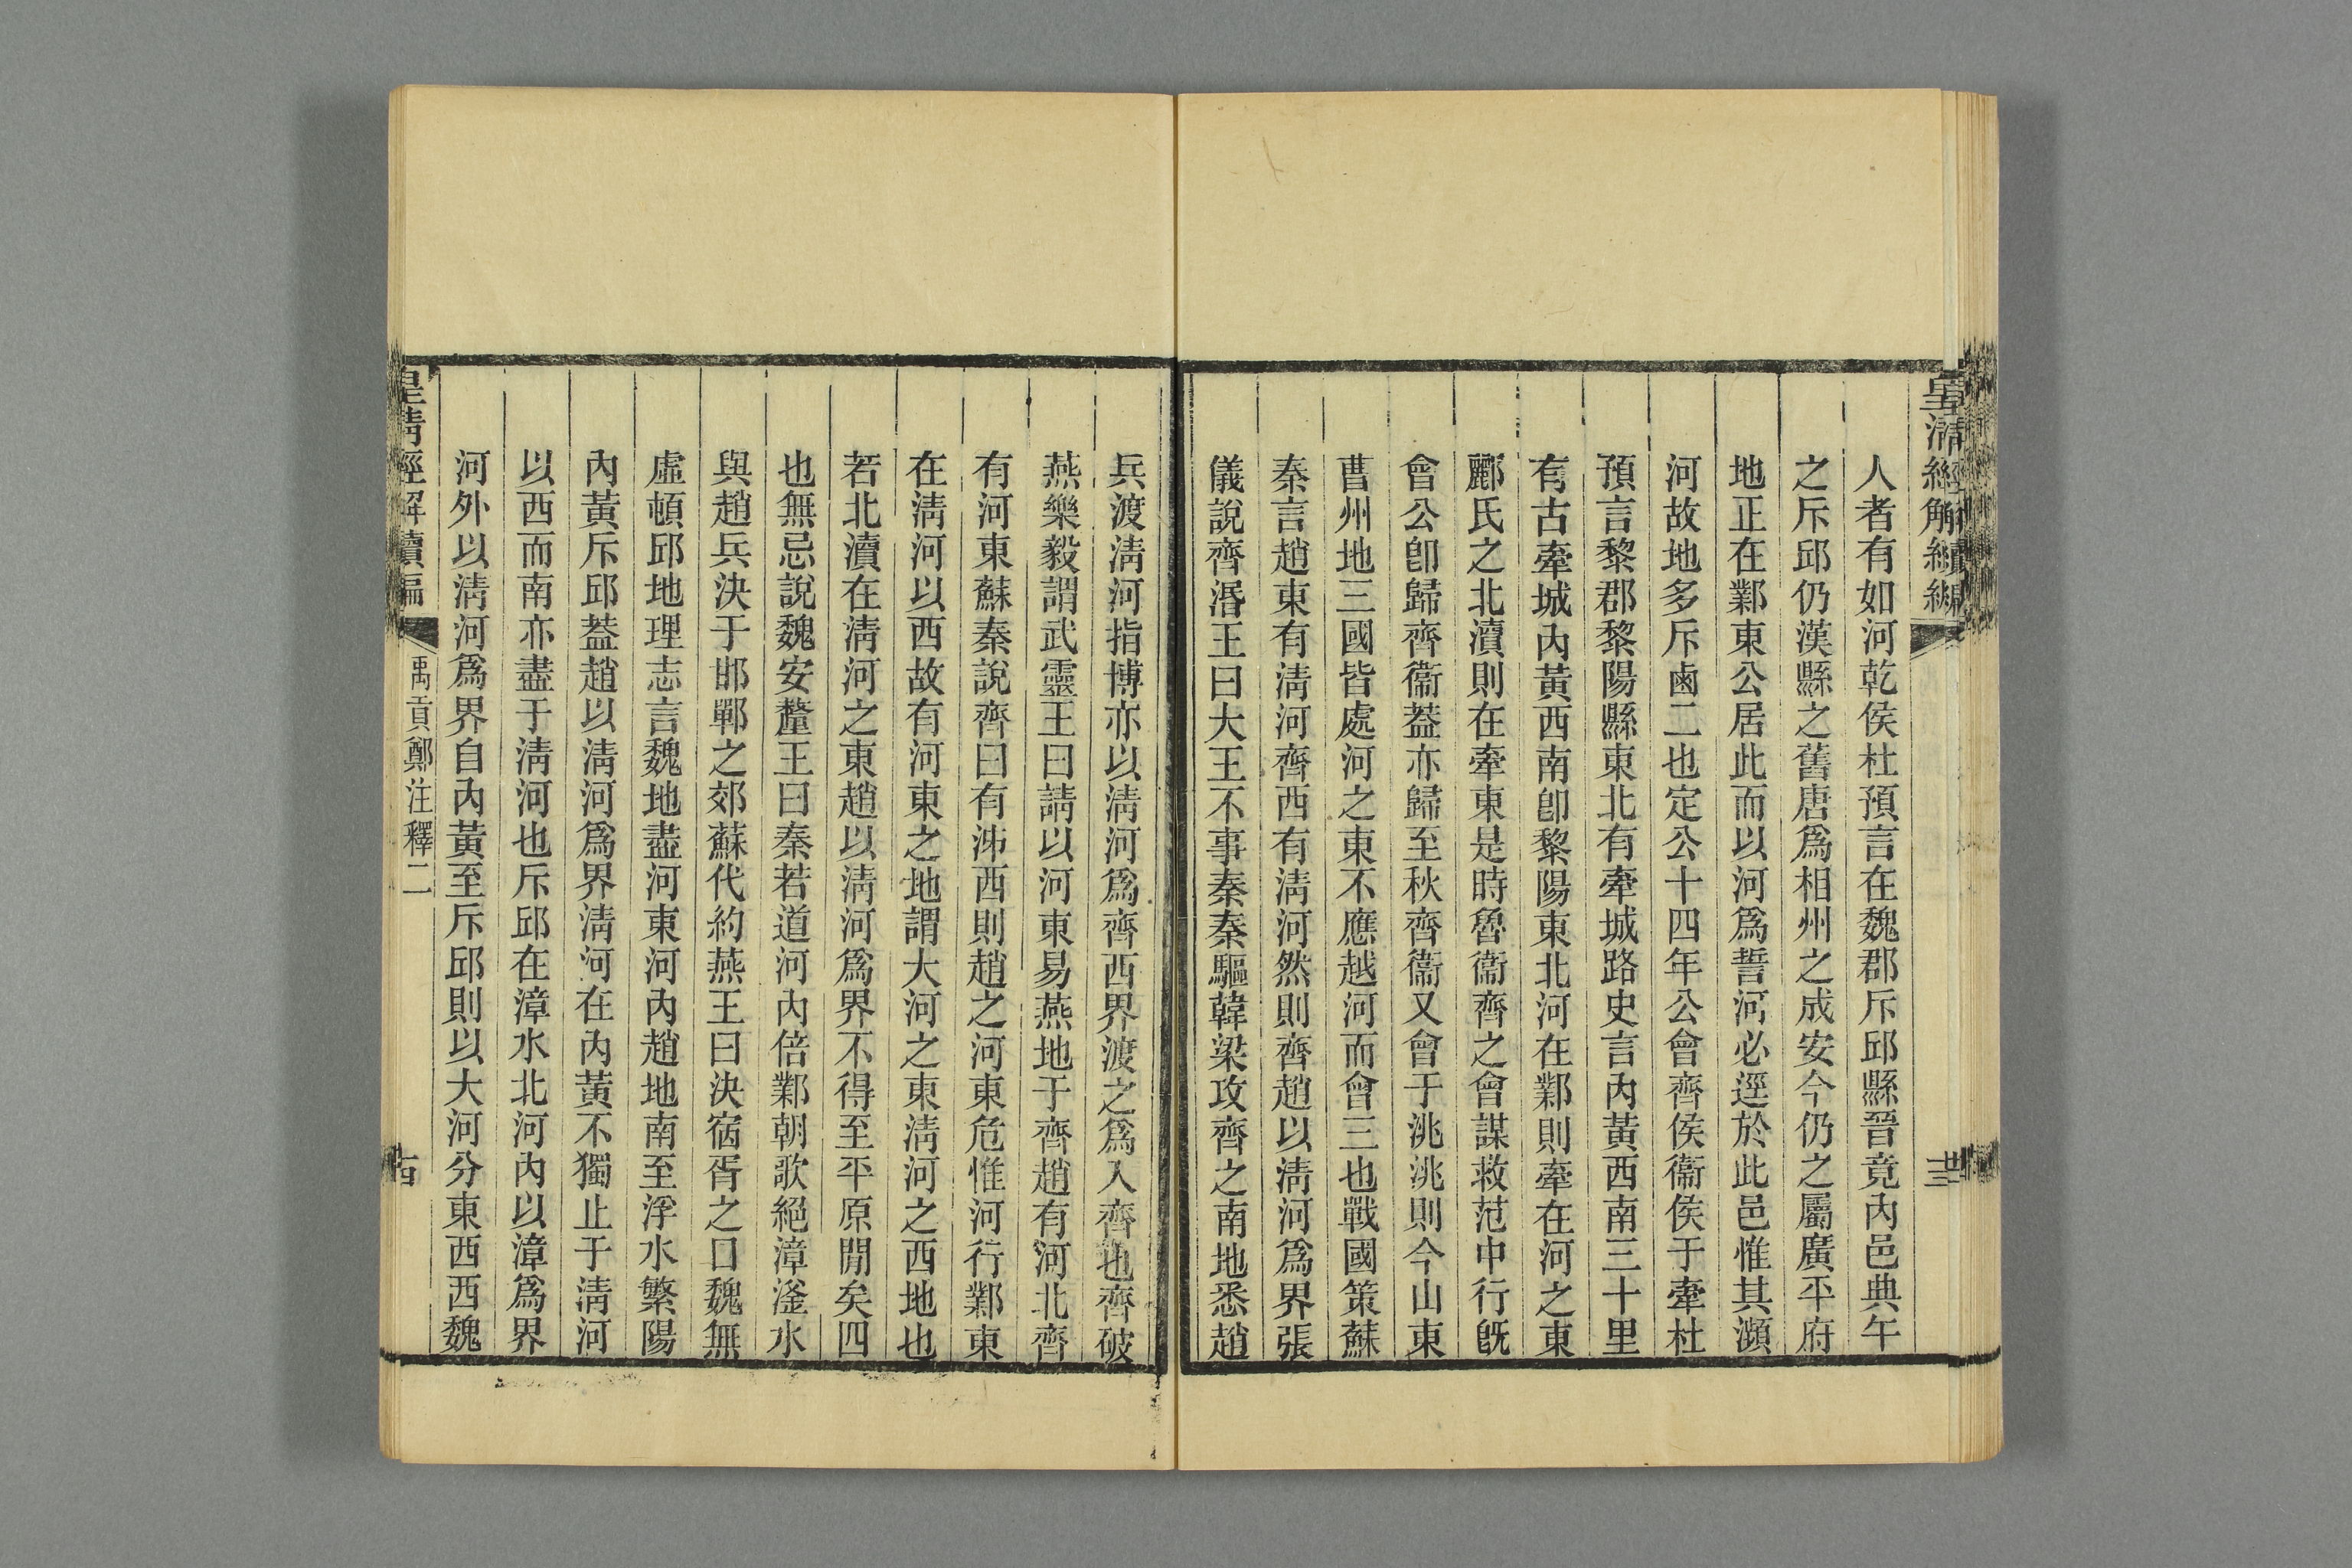 皇淸經解續編
人者有如河乾侯杜預言在魏郡斥邱縣晉竟內邑典午
之斥邱仍漢縣之舊唐爲相州之成安今仍之屬廣平府
地正在鄴東公居此而以河爲誓河必逕於此邑惟其瀕
河故地多斥鹵二也定公十四年公會齊侯衞侯于牽杜
預言黎郡黎陽縣東北有牽城路史言內黃西南三十里
有古牽城內黃西南卽黎陽東北河在鄴則牽在河之東
酈氏之北瀆則在牽東是時魯衞齊之會謀救范中行旣
會公卽歸齊衞葢亦歸至秋齊衞又會于洮洮則今山東
曹州地三國皆處河之東不應越河而會三也戰國策蘇
秦言趙東有淸河齊西有淸河然則齊趙以淸河爲界張
儀說齊湣王曰大王不事秦秦驅韓梁攻齊之南地悉趙
兵渡淸河指博亦以淸河爲齊西界渡之爲入齊也齊破
燕樂毅謂武靈王曰請以河東易燕地于齊趙有河北齊
有河東蘇秦說齊曰有沛西則趙之河東危惟河行鄴東
在淸河以西故有河東之地謂大河之東淸河之西地也
若北瀆在淸河之東趙以淸河爲界不得至平原閒矣四
也無忌說魏安釐王曰秦若道河內倍鄴朝歌絕漳滏水
與趙兵決于邯鄲之郊蘇代約燕王曰決宿胥之口魏無
虛頓邱地理志言魏地盡河東河內趙地南至浮水繁陽
內黃斥邱葢趙以淸河爲界淸河在內黃不獨止于淸河
以西而南亦盡于淸河也斥邱在漳水北河內以漳爲界
河外以淸河爲界自內黃至斥邱則以大河分東西西魏
皇淸經解續編
禹貢鄭注釋二